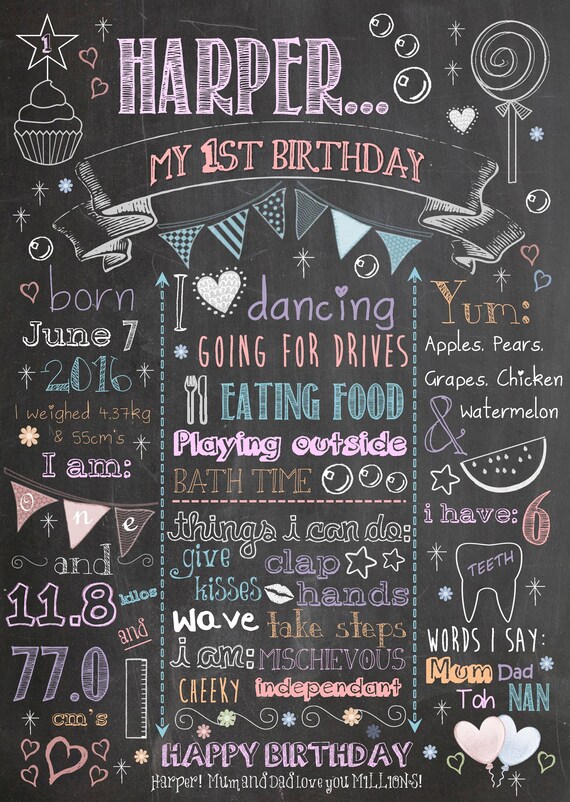 1
HARPER...
MY 1ST BIRTHDAY
born
June 7
2016
I weighed 4.37kg
& 55cm's
I am:
one
and
11.8 kilos
and
77.0
cm's
I dancing
GOING FOR DRIVES
EATING FOOD
Playing outside
BATH TIME
things i can do:
give kisses
clap hands
wave take steps
i am: MISCHIEVOUS
CHEEKY independant
Yum:
Apples. Pears.
Grapes. Chicken
& watermelon
i have: 6
TEETH
WORDS I SAY:
Mum Dad
Toh NAN
HAPPY BIRTHDAY
Harper! Mum and Dad love you M1LL1ONS!